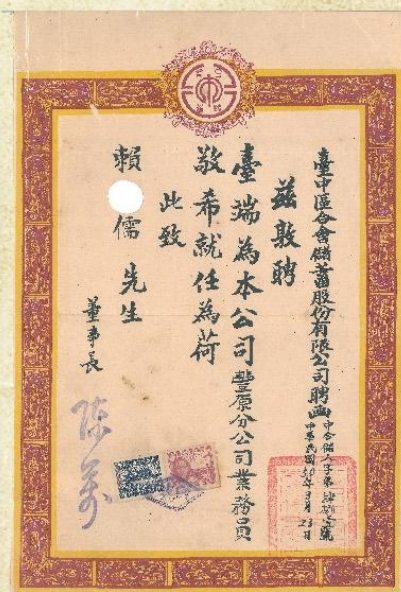 臺中區合會儲蓄股份有限公司聘函
中合儲人字第號
中華民國50年3月23日
茲敦聘
臺端為本公司豐原分公司業務員
敬希就任為荷
此致
賴 儒 先生
董事長
陳萬